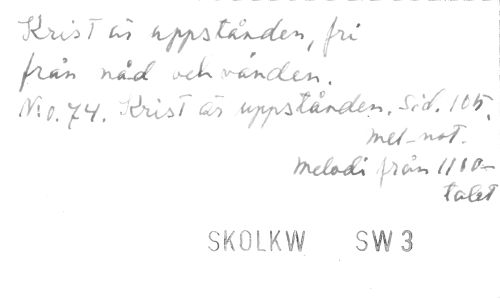 Krist är uppstånden, fri
från nåd och vånden.
N:o. 74. Krist är uppstånden. Sid. 105.
mel-not.
Melodi från 1100-
talet
SKOLKW SW 3